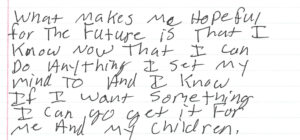 What makes me Hopeful
for The Future is That I
Know Now That I Can
Do Anything I Set My
mind To And I Know
If I Want Something
I Can go get it For
me And my Children.